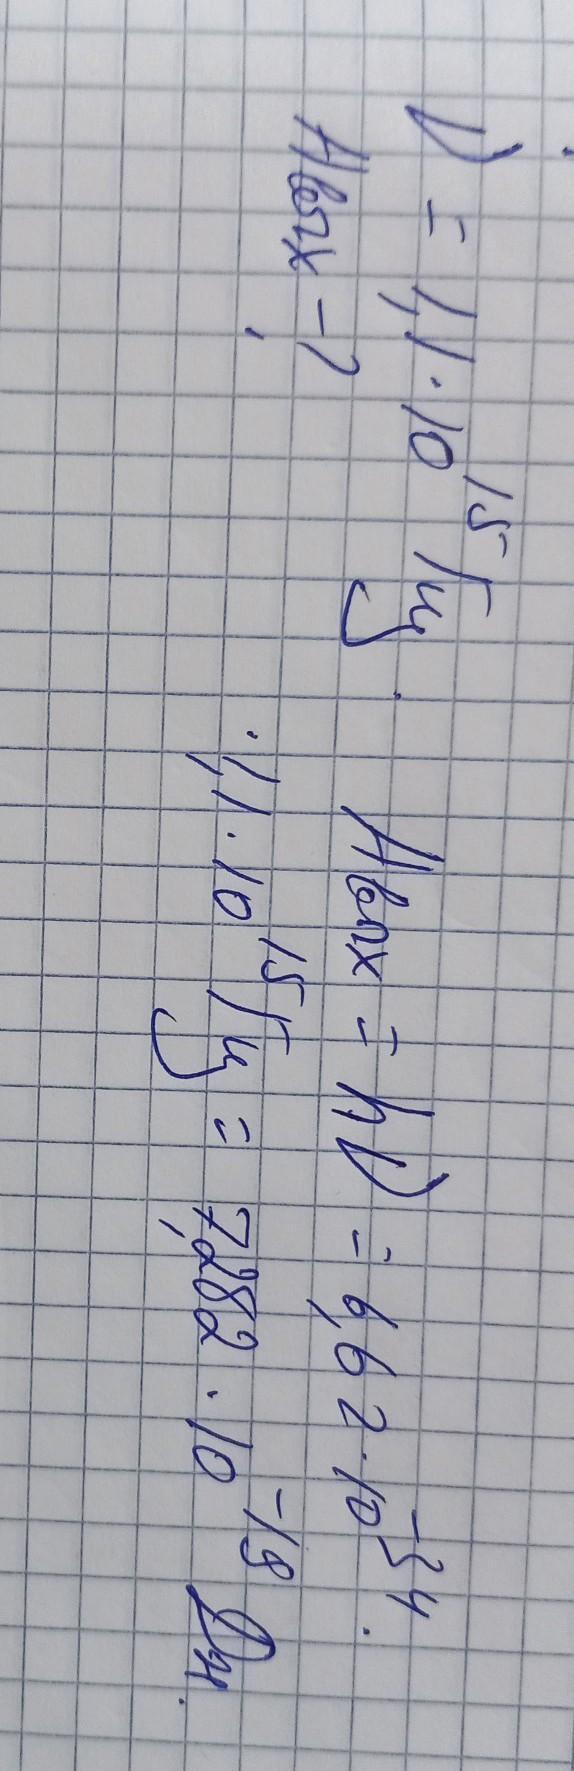 ν = 1,1 · 10¹⁵ Гц.
Aвых - ?
Aвых = hν = 6,62 · 10⁻³⁴ ·
· 1,1 · 10¹⁵ Гц = 7,282 · 10⁻¹⁹ Дж.